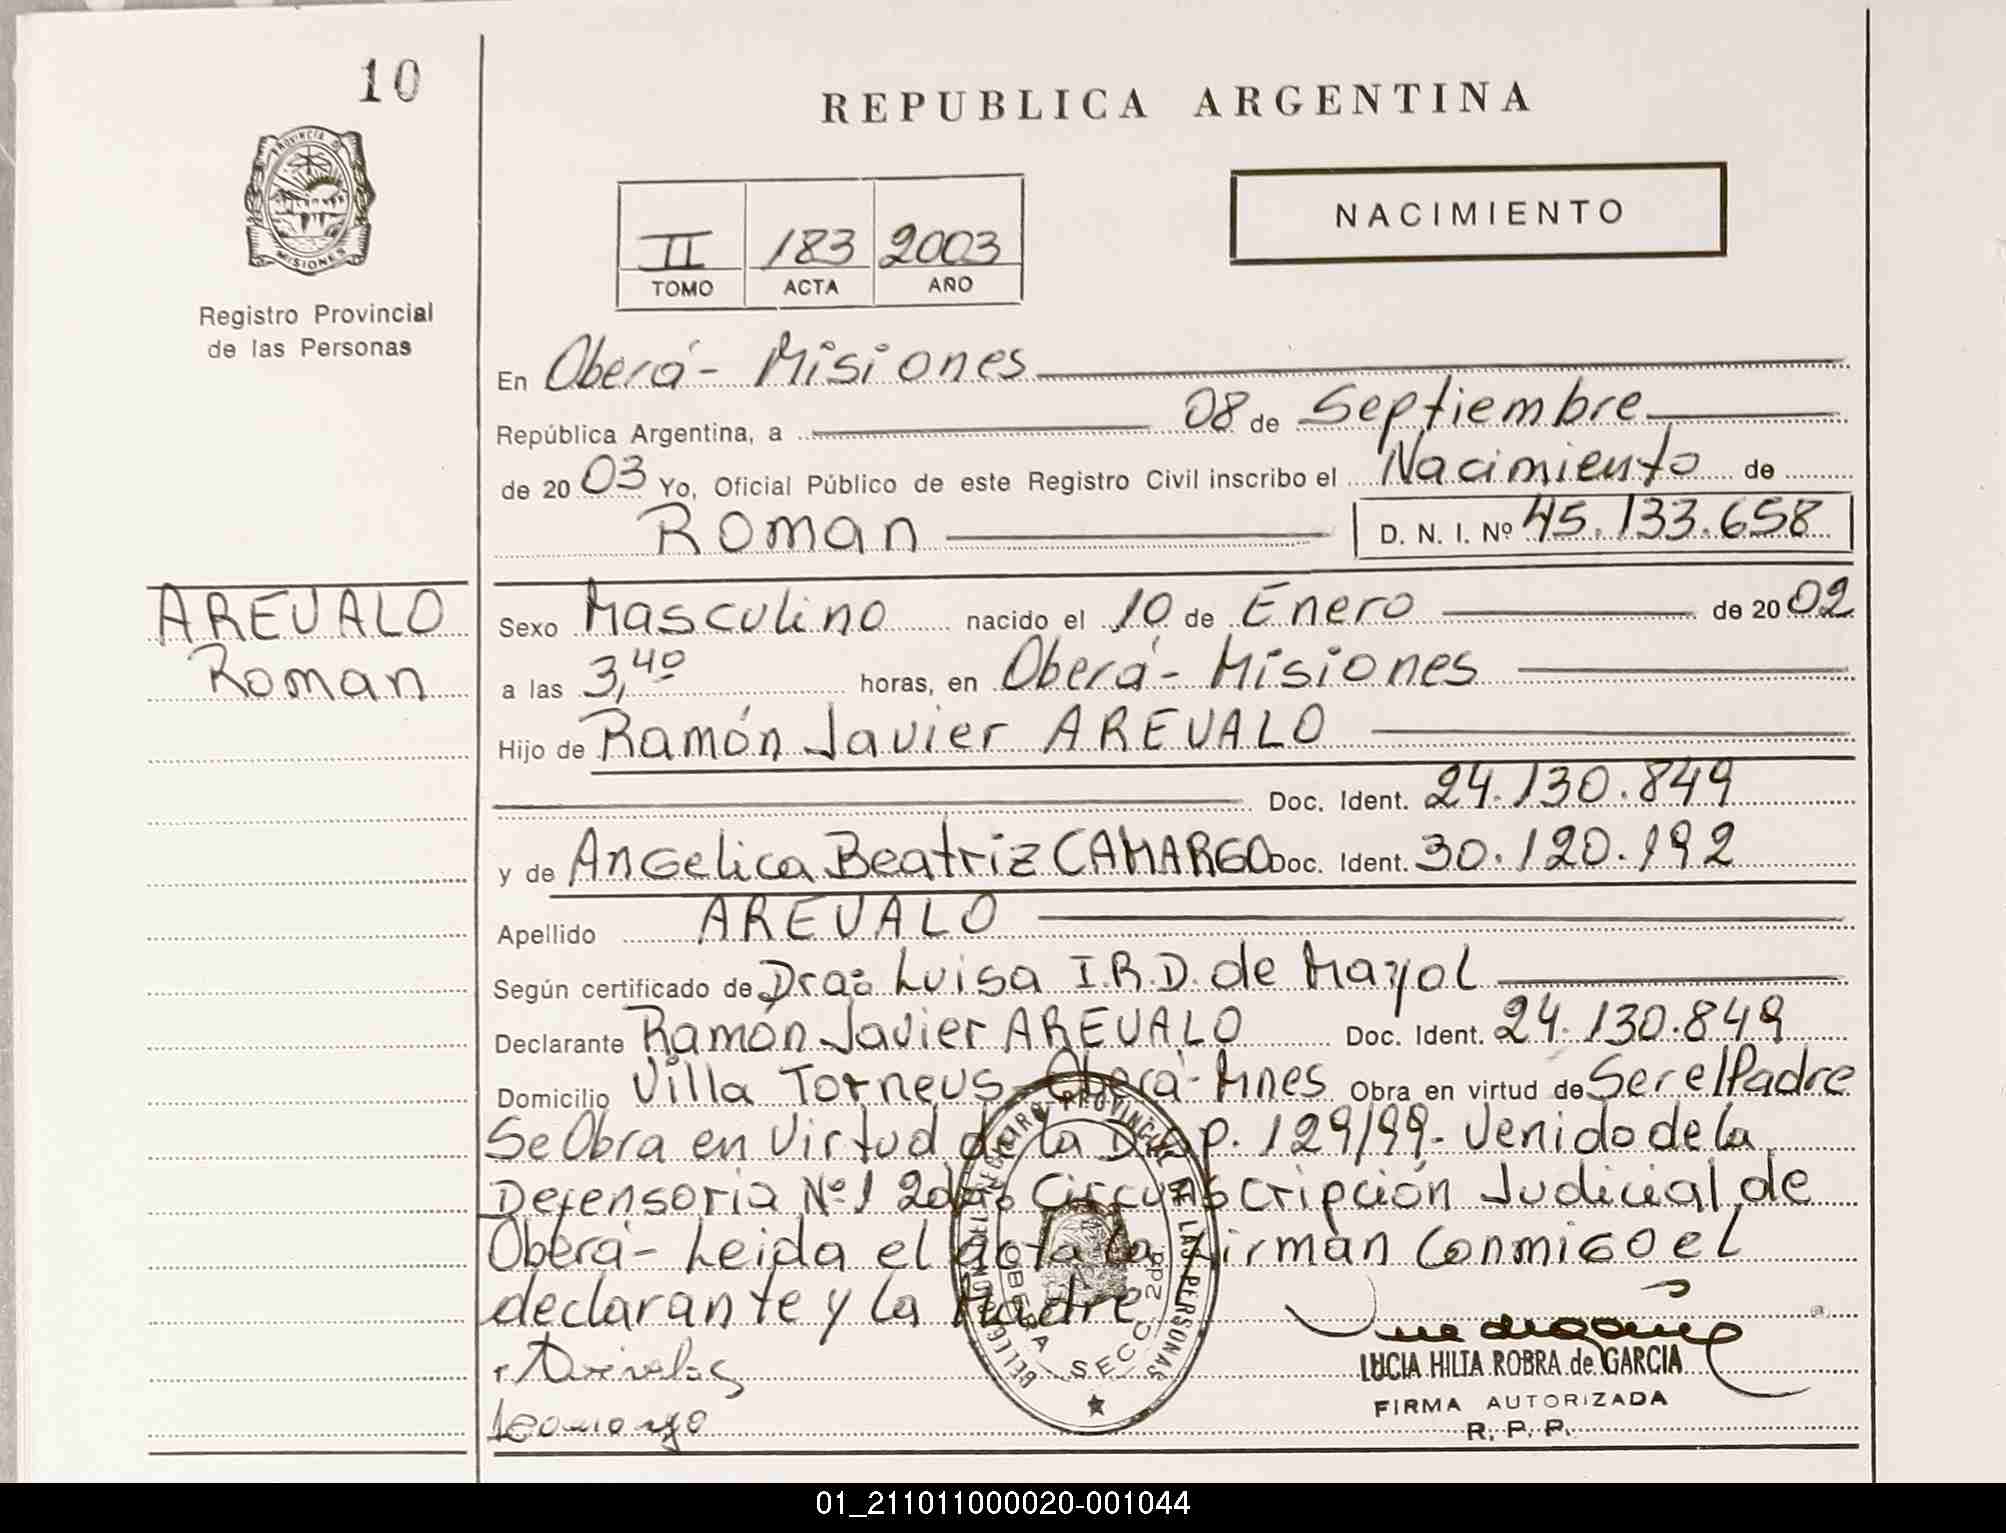 10
REPUBLICA ARGENTINA
PROVINCIA DE
MISIONES
Registro Provincial
de las Personas
II 183 2003
TOMO ACTA AÑO
NACIMIENTO
En Oberá - Misiones
República Argentina, a 08 de Septiembre
de 2003 Yo, Oficial Público de este Registro Civil inscribo el Nacimiento de
Roman D. N. I. Nº 45.133.658
AREVALO
Roman
Sexo Masculino nacido el 10 de Enero de 2002
a las 3,40 horas, en Oberá - Misiones
Hijo de Ramón Javier AREVALO
Doc. Ident. 24.130.849
y de Angelica Beatriz CAMARGO Doc. Ident. 30.120.192
Apellido AREVALO
Según certificado de Dra: Luisa I.R.D. de Mayol
Declarante Ramón Javier AREVALO Doc. Ident. 24.130.849
Domicilio Villa Torneus - Oberá - Mnes Obra en virtud de Ser el Padre
Se Obra en Virtud de la Disp. 129/99 - Venido de la
Defensoria Nº 1 2da: Circunscripción Judicial de
Oberá - Leida el acta la Firman Conmigo el
declarante y la Madre
LUCIA HILTA ROBRA de GARCIA
FIRMA AUTORIZADA
R. P. P.
REGISTRO PROVINCIAL DE LAS PERSONAS
OBERA SECC. 2da.
01_211011000020-001044